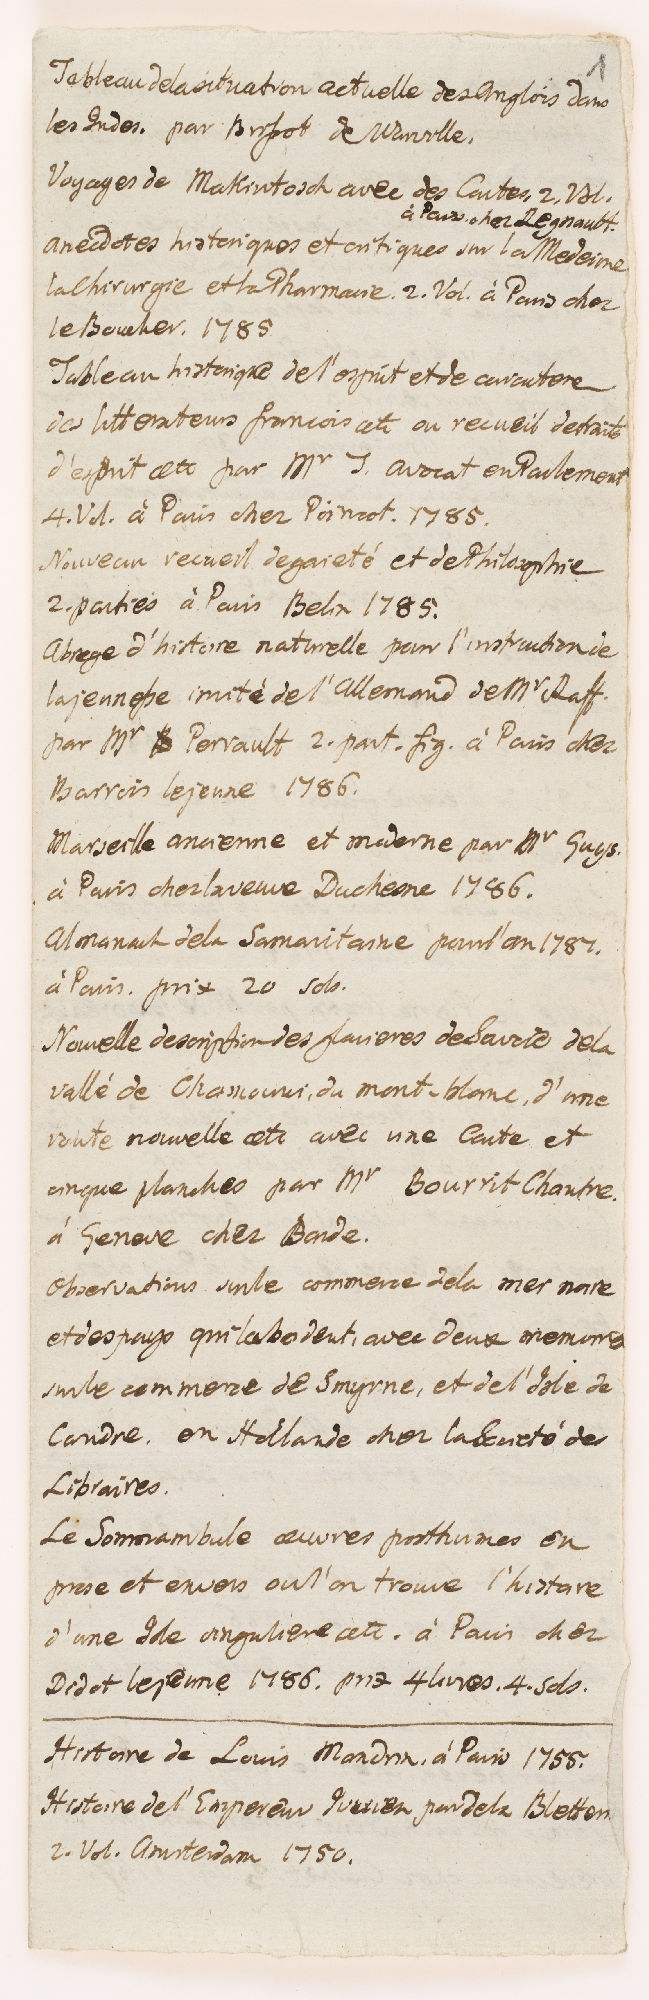 1
Tableau dela situation actuelle des Anglois dans
les Indes. par Brissot de Warville.
Voyages de Makintosch avec des Cartes, 2. Vol.
à Paris. chez Regnault.
Anecdotes historiques et critiques sur la Medecine
la Chirurgie et la Pharmacie. 2. Vol. à Paris chez
le Boucher. 1785
Tableau historique de l'esprit et de caractere
des litterateurs francois etc ou recueil de traits
d'esprit etc par Mr T. avocat en Parlement
4. Vol. à Paris chez Poincot. 1785.
Nouveau recueil de gaieté et de Philosophie
2. parties à Paris Belin 1785.
Abrege d'histoire naturelle pour l'instruction de
la jeunesse imité de l'Allemand de Mr Raff.
par Mr Perrault 2. part. fig. à Paris chez
Barrois le jeune 1786.
Marseille ancienne et moderne par Mr Guys.
à Paris chez la veuve Duchesne 1786.
Almanach dela Samaritaine pour l'an 1787.
à Paris. prix 20 sols.
Nouvelle description des glacieres de Savoie dela
vallé de Chamouni, du mont-blanc, d'une
route nouvelle etc avec une Carte et
cinque planches par Mr Bourrit Chantre.
à Geneve chez Barde.
Observations sur le commerce dela mer noire
et des pays qui la bordent, avec deux memoires
sur le commerce de Smyrne, et de l'Isle de
Candie. en Hollande chez la Societé des
Libraires.
Le Somnambule œuvres posthumes en
prose et en vers ou l'on trouve l'histoire
d'une Isle singuliere etc. à Paris chez
Didot le jeune 1786. prix 4 livres. 4. sols.
Histoire de Louis Mandrin. à Paris 1755.
Histoire de l'Empereur Jovien par dela Bletteri
2. Vol. Amsterdam 1750.